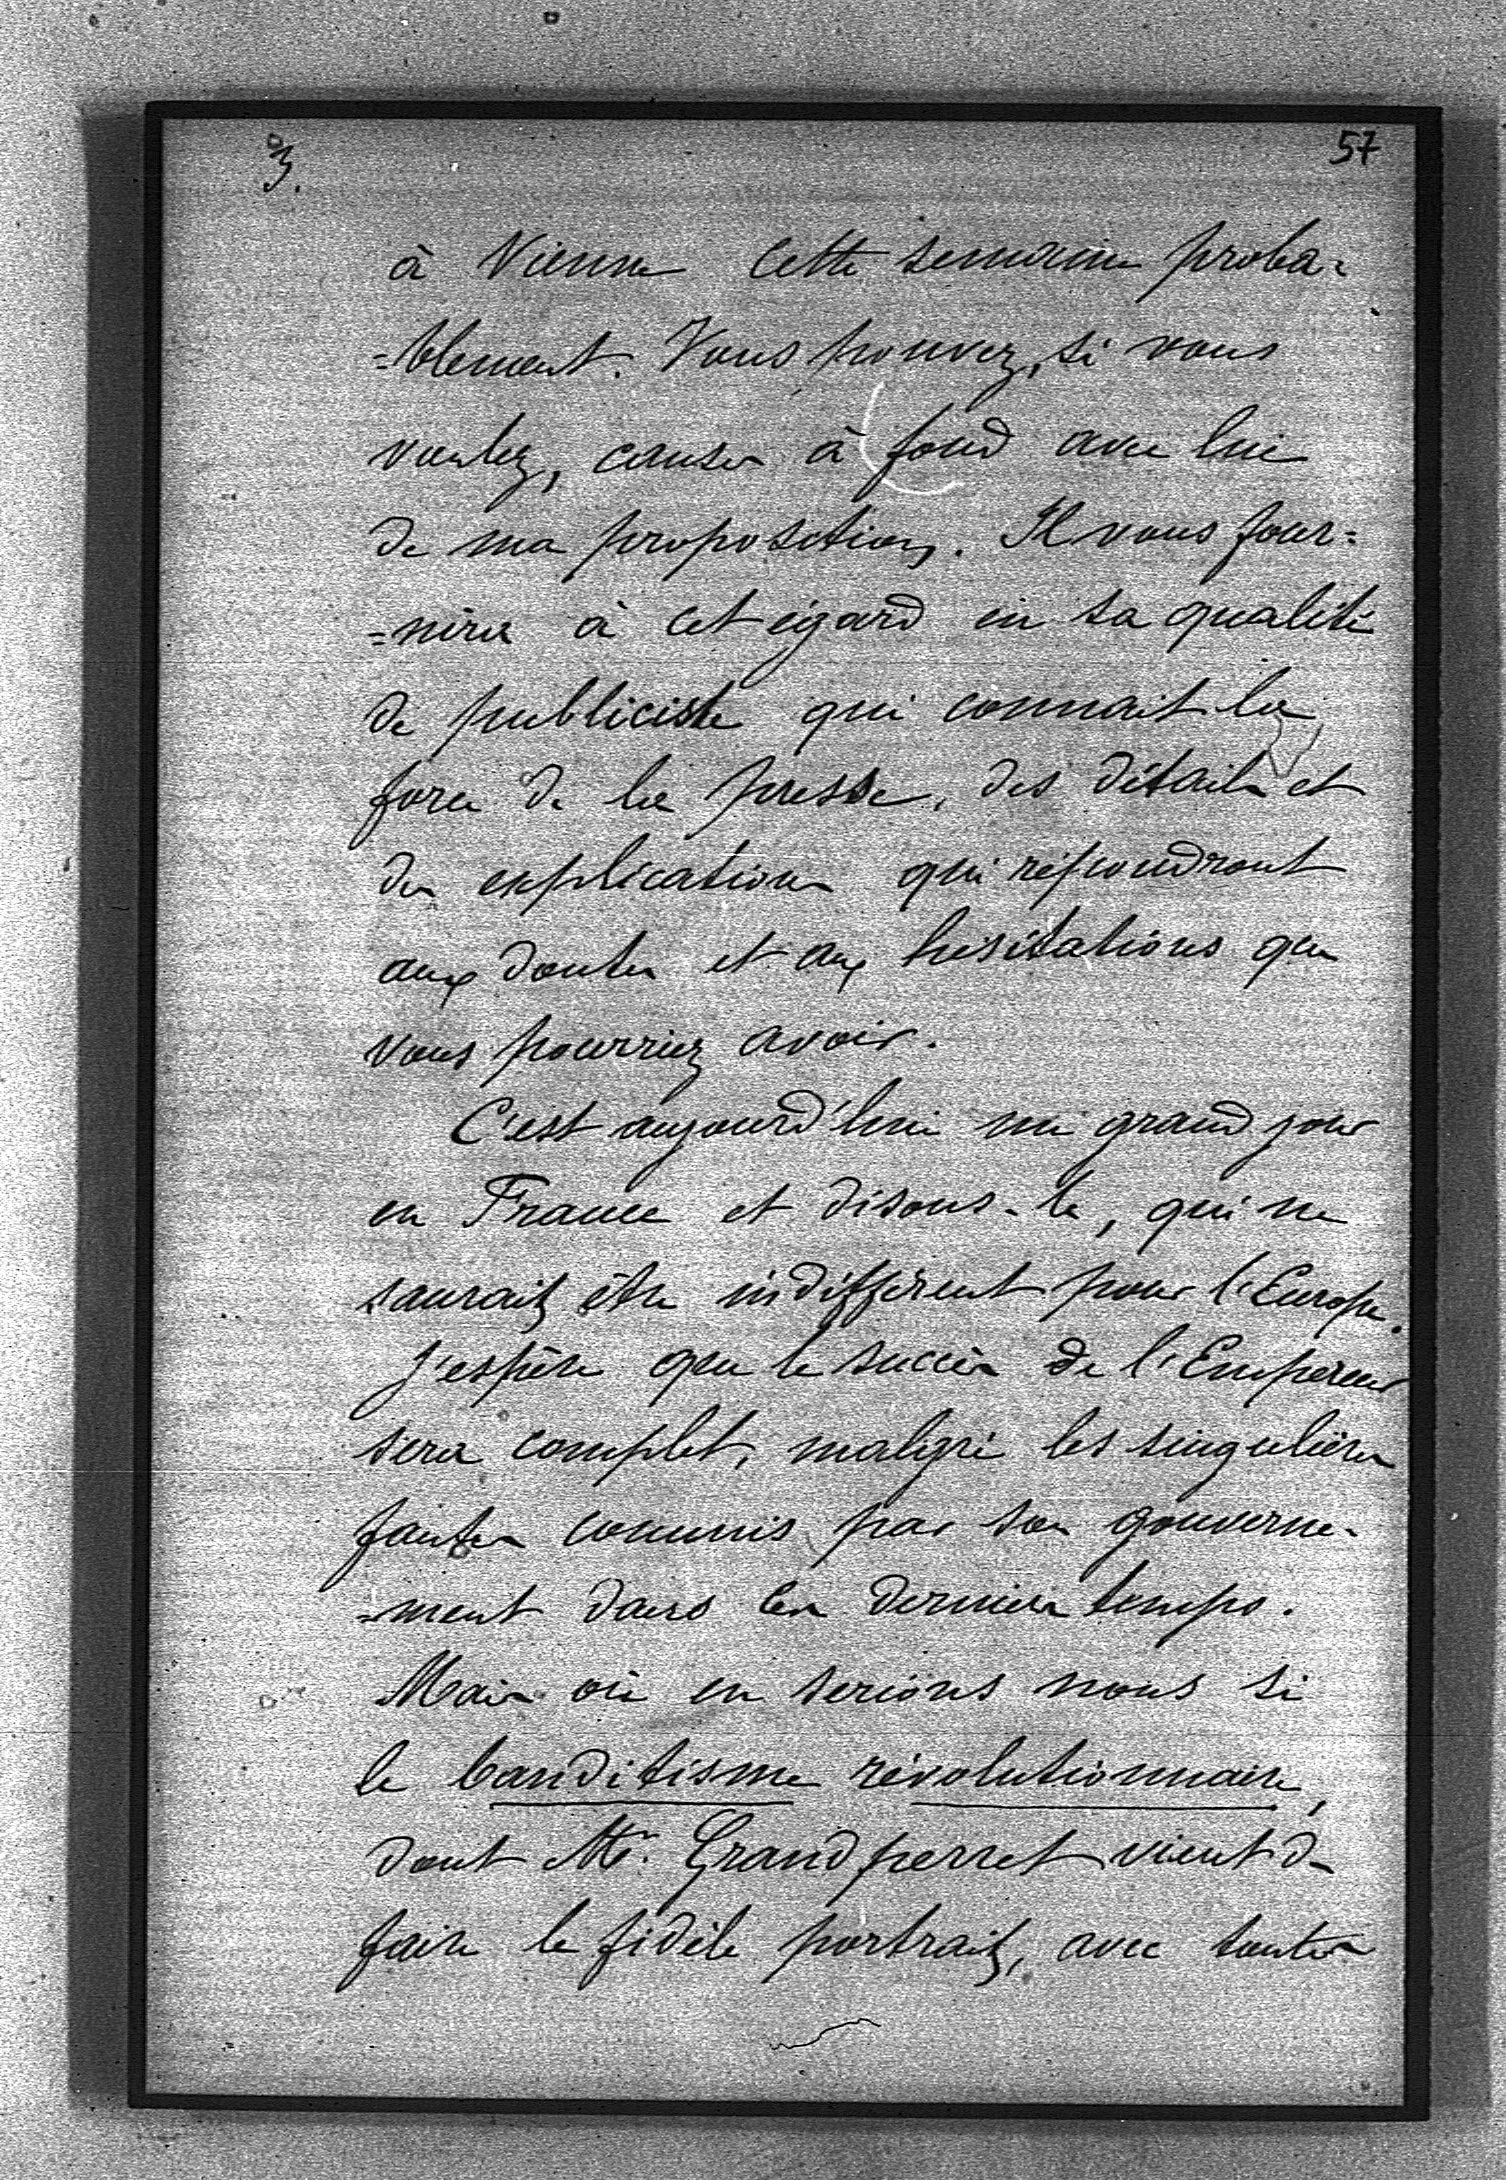 3.
57
à Vienne cette semaine proba=
=blement. Vous pouvez, si vous
voulez, causer à fond avec lui
de ma proposition. Il vous four=
=nira à cet égard en sa qualité
de publiciste qui connait la
force de la presse, des détails et
des explications qui répondront
aux doutes et aux hésitations que
vous pourriez avoir.
C'est aujourd'hui un grand jour
en France et disons-le, qui ne
saurait être indifférent pour l'Europe.
J'espère que le succès de l'Empereur
sera complet, malgré les singulières
fautes commis par son gouverne-
-ment dans les derniers temps.
Mais où en serions nous si
le banditisme révolutionnaire,
dont Mr. Grandperret vient de
faire le fidèle portrait, avec toutes